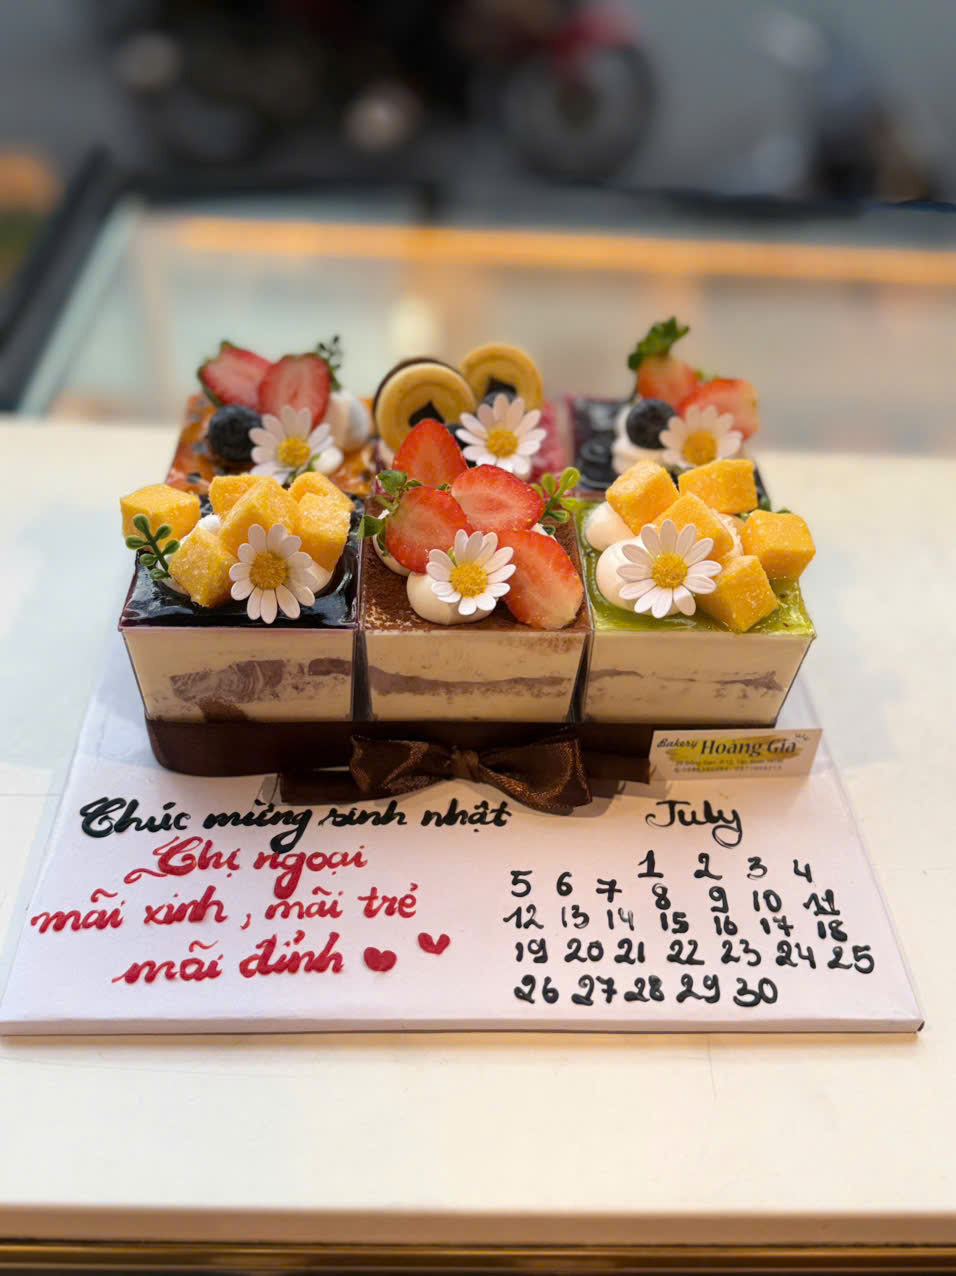 Bakery Hoàng Gia
Chúc mừng sinh nhật
Chị ngoại
mãi xinh, mãi trẻ
mãi đỉnh
July
1 2 3 4
5 6 7 8 9 10 11
12 13 14 15 16 17 18
19 20 21 22 23 24 25
26 27 28 29 30